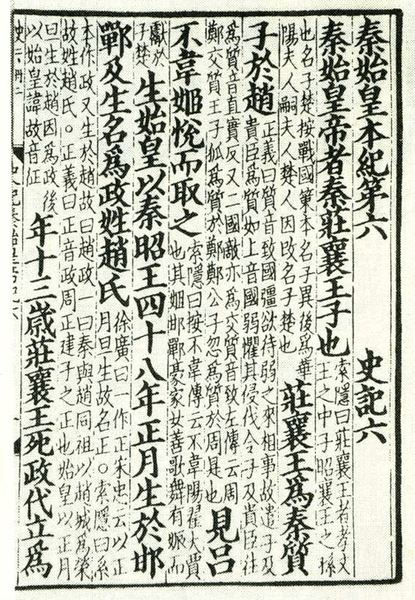 秦始皇本紀第六　史記六
秦始皇帝者秦莊襄王子也
索隱曰莊襄王者孝文
王之中子昭襄王之孫
也名子楚按戰國策本名子異後爲華
陽夫人嗣夫人楚人因改名子楚也
莊襄王爲秦質
子於趙
正義曰質音致國彊欲待弱之來相事故遣子及
貴臣爲質如上音國弱懼其侵伐令子及貴臣往
爲質音直實反又二國敵亦爲交質音致左傳云周
鄭交質王子狐爲質於鄭鄭公子忽爲質於周是也
見呂
不韋姬悅而取之
索隱曰按不韋傳云不韋陽翟大賈
也其姬邯鄲豪家女善歌舞有娠而
獻於
子楚
生始皇以秦昭王四十八年正月生於邯
鄲及生名爲政姓趙氏
徐廣曰一作正宋忠云以正
月旦生故名正○索隱曰系
本作政又生於趙故曰趙政一曰秦與趙同祖以趙城爲榮
故姓趙氏○正義曰正音政周正建子之正也始皇以正月
旦生於趙因爲政後
以始皇諱故音征
年十三歲莊襄王死政代立爲